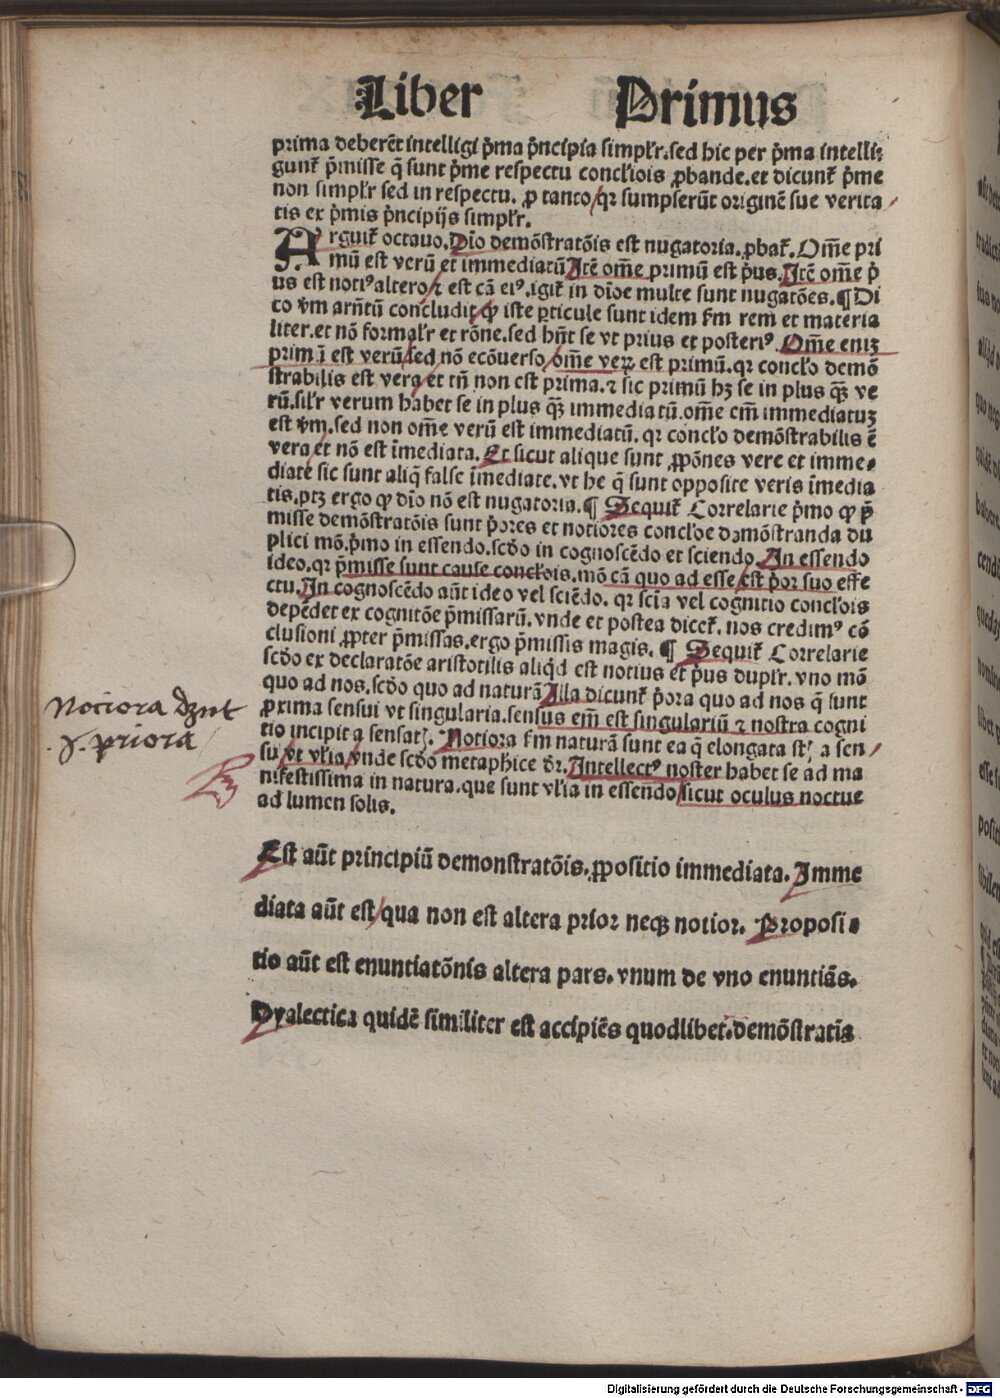 Liber Primus
prima deberēt intelligi p̄ma p̄ncipia simpłr. sed hic per p̄ma intelli⸗
gunt̄ p̄misse q̄ sunt p̄me respectu concłiois ꝓbande. et dicunt̄ p̄me
non simpłr sed in respectu. ꝓ tanto / qꝛ sumpserūt originē sue verita
tis ex p̄mis p̄ncipijs simpłr.
Arguit̄ octauo. Diō demōstratōis est nugatoria. ꝓbat̄. Om̄e pri
mū est verū et immediatū Itē om̄e primū est p̄us. Itē om̄e p̄
us est notiꝰ altero / ⁊ est cā eiꝰ. igit̄ in dīoe multe sunt nugatōes. ¶ Di
co v̄m arn̄tū concludit / ꝙ iste ꝑticule sunt idem s̄m rem et materia
liter. et nō formałr et rōne. sed hn̄t se vt prius et posteriꝰ. Om̄e eniꝫ
primū est verū / sed nō ecōuerso / om̄e veꝝ est primū. qꝛ concło demō
strabilis est vera / et tn̄ non est prima. ⁊ sic primū hꝫ se in plus qꝫ ve
rū. siłr verum habet se in plus qꝫ immediatū. om̄e em̄ immediatuꝫ
est v̄m. sed non om̄e verū est immediatū. qꝛ concło demōstrabilis ē
vera / et nō est īmediata. Et sicut alique sunt ꝓpōnes vere et imme⸗
diate sic sunt aliq̄ false īmediate. vt he q̄ sunt opposite veris īmedia
tis. ptꝫ ergo ꝙ diō nō est nugatoria. ¶ Sequit̄ Correlarie p̄mo ꝙ p̄
misse demōstratōis sunt p̄ores et notiores concłoe demōstranda du
plici mō. p̄mo in essendo. scd̄o in cognoscēdo et sciendo. In essendo
ideo. qꝛ p̄misse sunt cause concłois. mō cā quo ad esse / est p̄or suo effe
ctu. In cognoscēdo aūt ideo vel sciēdo. qꝛ scīa vel cognitio concłois
depēdet ex cognitōe p̄missarū. vnde et postea dicet̄. nos credimꝰ cō
clusioni ꝓpter p̄missas. ergo p̄missis magis. ¶ Sequit̄ Correlarie
scd̄o ex declaratōe aristotilis aliqd̄ est notius et p̄us dupłr. vno mō
quo ad nos. scd̄o quo ad naturā Illa dicunt̄ p̄ora quo ad nos q̄ sunt
proxima sensui vt singularia. sensus em̄ est singulariū ⁊ nostra cogni
tio incipit a sensatꝫ. Notiora s̄m naturā sunt ea q̄ elongata st̄ a sen
su / vt vłia / vnde scd̄o metaph̄ice d̄r. Intellectꝰ noster habet se ad ma
nifestissima in natura. que sunt vłia in essendo / sicut oculus noctue
ad lumen solis.
Nociora dꝛnt
.i. priora
Est aūt principiū demonstratōis. ꝓpositio immediata. Imme
diata aūt est / qua non est altera prior neqꝫ notior. Proposi⸗
tio aūt est enuntiatōnis altera pars. vnum de vno enuntiās.
Dyalectica quidē similiter est accipiēs quodlibet. demōstratīa
Digitalisierung gefördert durch die Deutsche Forschungsgemeinschaft - DFG